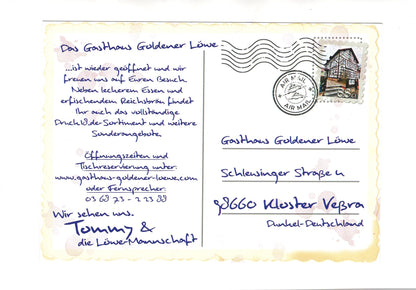 Das Gasthaus Goldener Löwe
...ist wieder geöffnet und wir
freuen uns auf Euren Besuch.
Neben leckerem Essen und
erfischendem Reichsbräu findet
Ihr auch das vollständige
Druck18de-Sortiment und weitere
Sonderangebote.
Öffnungszeiten und
Tischreservierung unter:
www.gasthaus-goldener-loewe.com
oder Fernsprecher:
03 68 73 - 2 23 88
Wir sehen uns.
Tommy &
die Löwe-Mannschaft
AIR MAIL
AIR MAIL
Gasthaus Goldener Löwe
Schleusinger Straße 4
98660 Kloster Veßra
Dunkel-Deutschland